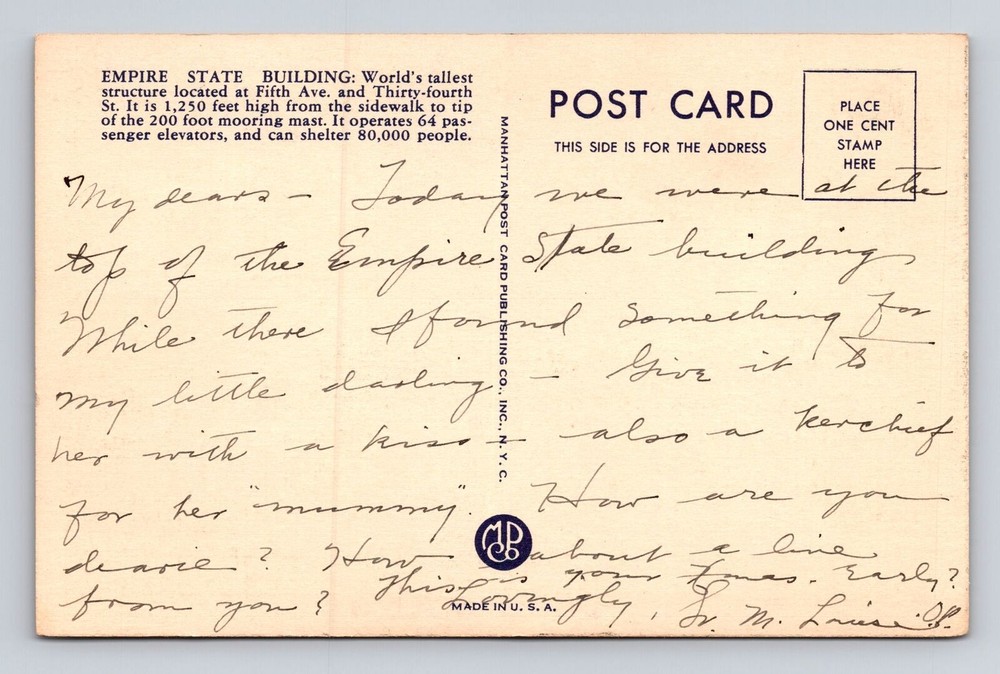 EMPIRE STATE BUILDING: World's tallest
structure located at Fifth Ave. and Thirty-fourth
St. It is 1,250 feet high from the sidewalk to tip
of the 200 foot mooring mast. It operates 64 pas-
senger elevators, and can shelter 80,000 people.
POST CARD
THIS SIDE IS FOR THE ADDRESS
PLACE
ONE CENT
STAMP
HERE
MANHATTAN POST CARD PUBLISHING CO., INC., N. Y. C.
My dears – Today we were at the
top of the Empire State building
While there I found something for
my little darling – Give it to
her with a kiss – also a kerchief
for her "mummy". How are you
dearie? How about a line
from you?
This is your Xmas. Early?
Lovingly, Sr. M. Louise O.P.
MPCo
MADE IN U. S. A.